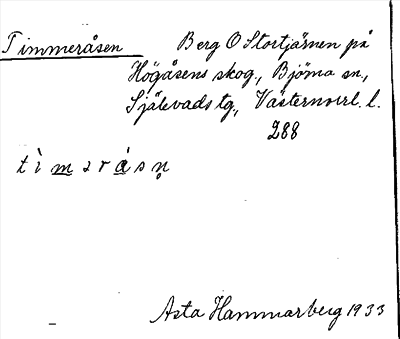 Timmeråsen
Berg O Stortjärnen på
Högåsens skog, Björna sn.,
Själevads tg., Västernorrl. l.
288
t ì m ə r å s n̥
Asta Hammarberg 1933